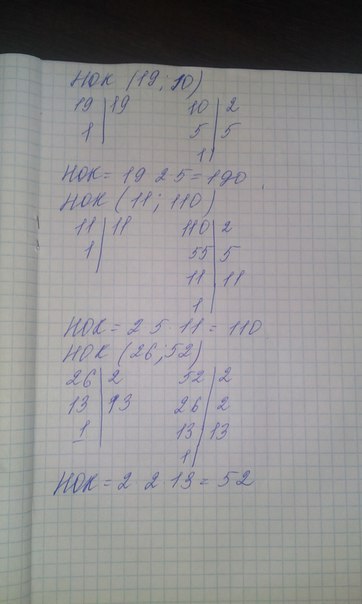 НОК (19; 10)
19 | 19 10 | 2
1 | 5 | 5
1 |
НОК = 19 2 5 = 190
НОК (11; 110)
11 | 11 110 | 2
1 | 55 | 5
11 | 11
1 |
НОК = 2 5 · 11 = 110
НОК (26; 52)
26 | 2 52 | 2
13 | 13 26 | 2
1 | 13 | 13
1 |
НОК = 2 2 13 = 52